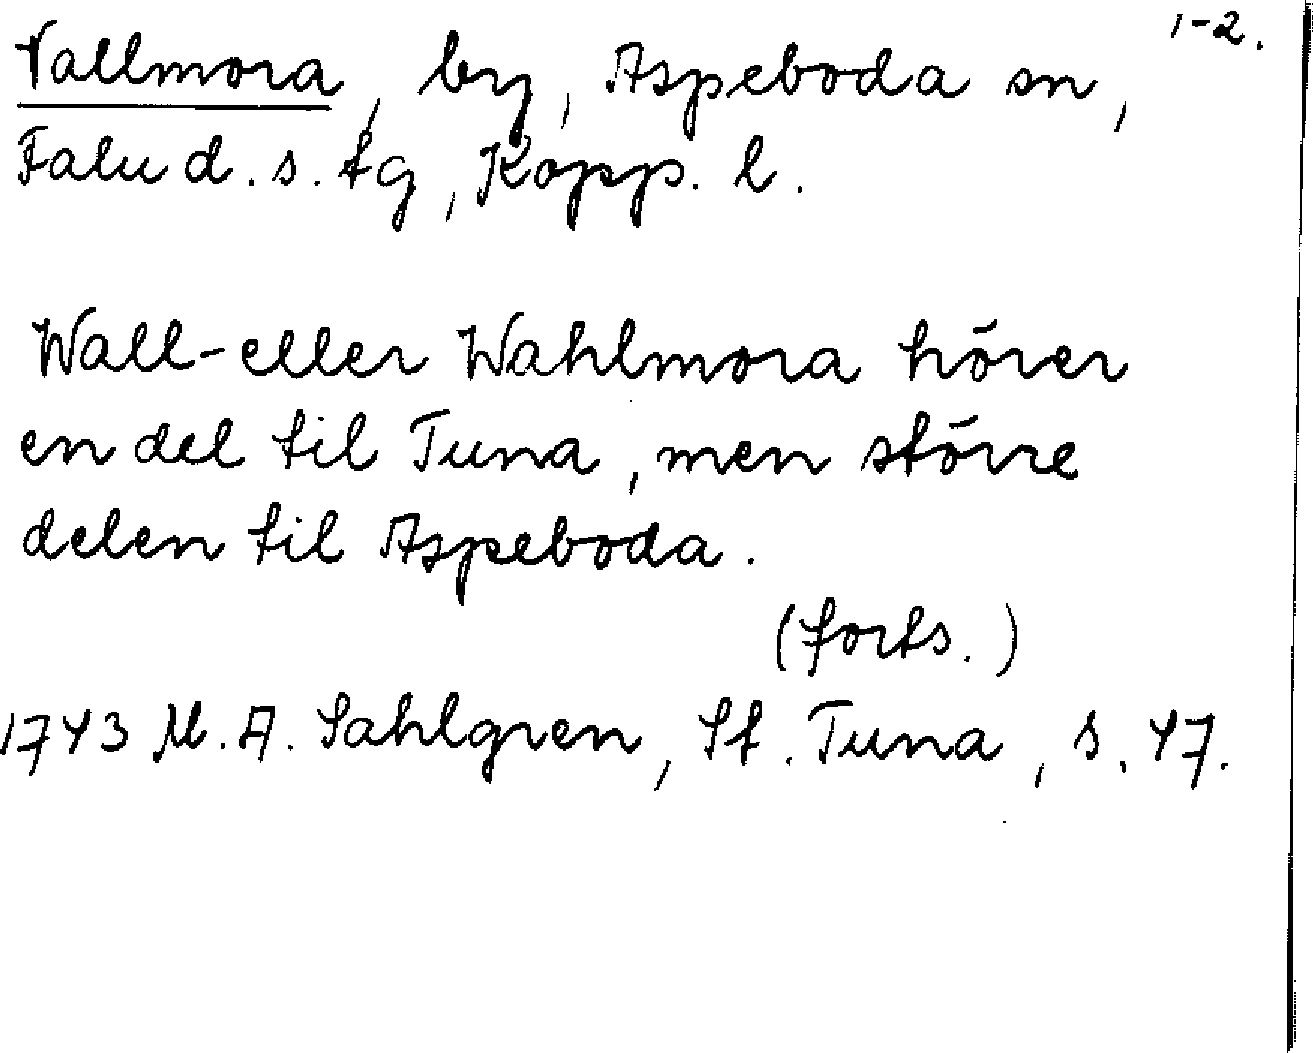 1-2.
Vallmora, by, Aspeboda sn,
Falu d.s. tg, Kopp. l.
Wall- eller Wahlmora hörer
en del til Tuna, men större
delen til Aspeboda.
(forts.)
1743 M.A. Sahlgren, St. Tuna, s. 47.